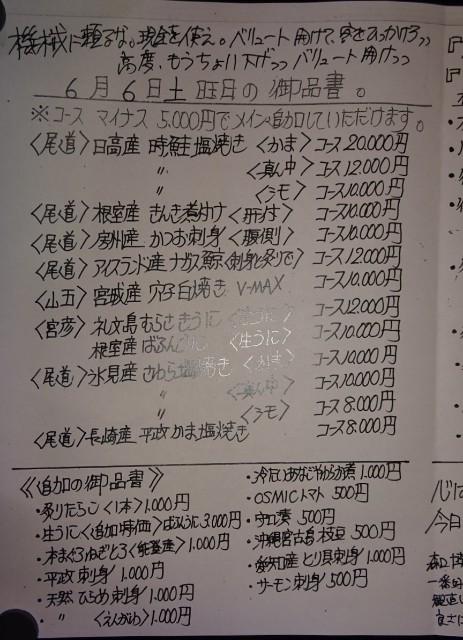 機械に頼るな。現金を使え。ベリュート開けて、客をひっかけろッッ
高度、もうちょい下げッッベリュート開けッッ
6月6日土旺日の御品書。
※コース マイナス 5.000円でメイン追加していただけます。
〈尾道〉日高産 時鮭塩焼き 〈かま〉 コース20.000円
〃 〈真ん中〉 コース12.000円
〃 〈シモ〉 コース10.000円
〈尾道〉根室産 きんき煮付け〈肝付〉 コース10.000円
〈尾道〉房州産 かつお刺身〈腹側〉 コース10.000円
〈尾道〉アイスランド産 ナガス鯨〈刺身と炙りで〉 コース12.000円
〈山五〉宮城産 穴子白焼き V-MAX コース10.000円
〈宮彦〉礼文島むらさきうに〈生うに〉 コース12.000円
根室産 ばふんうに 〈生うに〉 コース10.000円
〈尾道〉氷見産 さわら塩焼き 〈かま〉 コース10.000円
〃 〈真ん中〉 コース10.000円
〃 〈シモ〉 コース8.000円
〈尾道〉長崎産 平政かま塩焼き コース8.000円
《追加の御品書》
・炙りたらこ〈1本〉1.000円
・生うに〈追加特価〉ばふんうに3.000円
・本まぐろねぎとろ〈能登産〉1.000円
・平政刺身/1.000円
・天然 ひらめ刺身/1.000円
・〃 〈えんがわ〉1.000円
・冷たいあなごやわらか煮1.000円
・OSMICトマト 500円
・守口漬 500円
・沖縄宮古島枝豆 500円
・愛知産とり貝刺身/1.000円
・サーモン刺身/500円
今日
一番